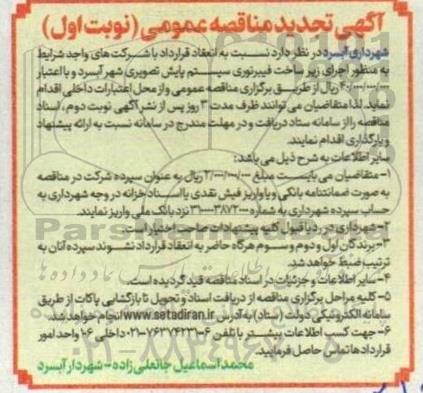 آگهی تجدید مناقصه عمومی (نوبت اول)
شهرداری آبسرد در نظر دارد نسبت به انعقاد قرارداد با شرکت های واجد شرایط
به منظور اجرای زیر ساخت فیبرنوری سیستم پایش تصویری شهر آبسرد و با اعتبار
۴۰/۰۰۰/۰۰۰/۰۰۰ ریال از طریق برگزاری مناقصه عمومی و از محل اعتبارات داخلی اقدام
نماید. لذا متقاضیان می توانند ظرف مدت ۳ روز پس از نشر آگهی نوبت دوم، اسناد
مناقصه را از سامانه ستاد دریافت و در مهلت مندرج در سامانه نسبت به ارائه پیشنهاد
و بارگذاری اقدام نمایند.
سایر اطلاعات به شرح ذیل می باشد:
۱- متقاضیان می بایست مبلغ ۲/۰۰۰/۰۰۰/۰۰۰ ریال به عنوان سپرده شرکت در مناقصه
به صورت ضمانتنامه بانکی و یا واریز فیش نقدی یا اسناد خزانه در وجه شهرداری به
حساب سپرده شهرداری به شماره نزد بانک ملی واریز نمایند.
۲- شهرداری در رد یا قبول کلیه پیشنهادات صاحب اختیار است.
۳- برندگان اول و دوم و سوم هرگاه حاضر به انعقاد قرارداد نشوند سپرده آنان به
ترتیب ضبط خواهد شد.
۴- سایر اطلاعات و جزئیات در اسناد مناقصه قید گردیده است.
۵- کلیه مراحل برگزاری مناقصه از دریافت اسناد و تحویل تا بازگشایی پاکات از طریق
سامانه الکترونیکی دولت (ستاد) به آدرس www.setadiran.ir انجام خواهد شد.
۶- جهت کسب اطلاعات بیشتر با تلفن ۶-۰۲۱-۷۶۳۷۴۲۳۳ داخلی ۱۰۶ واحد امور
قراردادها تماس حاصل فرمایید.
محمد اسماعیل جانعلی زاده - شهردار آبسرد